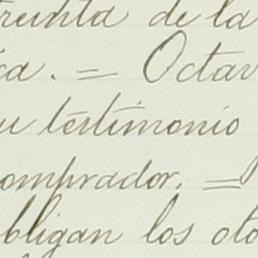 treinta de la
ca. = Octav
u testimonio
omprador. =
bligan los oto